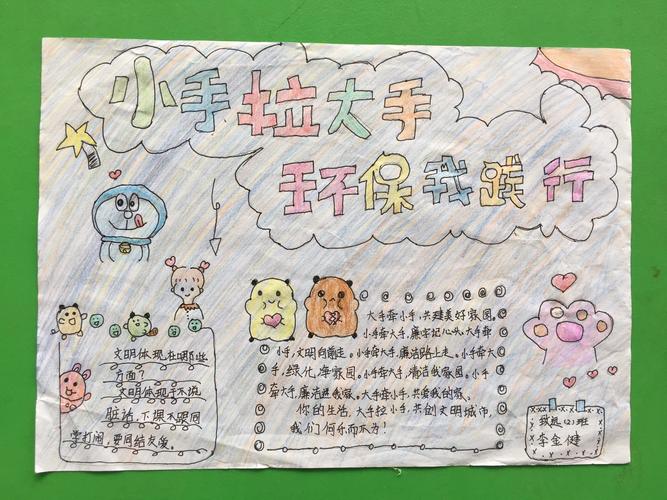 小手拉大手
环保我践行
文明体现在哪些
方面?
文明体现于不说
脏话,下课不跟同
学打闹,要团结友爱。
大手牵小手,共建美好家园。
小手牵大手,廉洁记心头,大手牵
小手,文明向前走。小手牵大手,廉洁路上走。小手牵大
手,绿化海家园。小手牵大手,清洁我家园。小手
牵大手,廉洁进我家。大手牵小手,共爱我的家、
你的生活,大手拉小手,共创文明城市,
我们何乐而不为!
(2)班
李金健